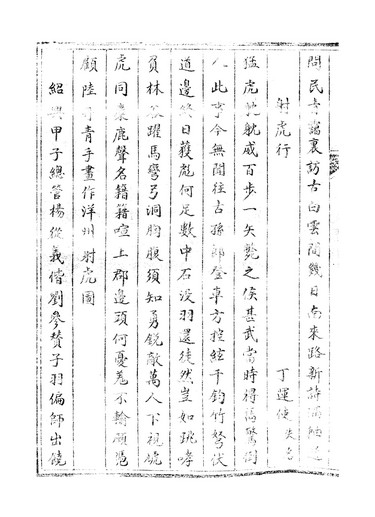 問民古
訪古白雲間幾日南來路新詩
射虎行
丁運使
猛虎眈眈威百步一矢斃之侯甚武當時得
人此事今無聞往古孫郎登車方控絃千鈞竹弩伏
道邊終日獲彪何足數中石没羽還徒然豈如
負林躍馬彎弓洞胸腹須知勇銳敵萬人下視
虎同麋鹿聲名籍籍喧上郡邊頭何憂羌不輸願憑
顧陸丹青手畫作洋州射虎圖
紹興甲子總管楊從義偕劉參賛子羽偏師出饒